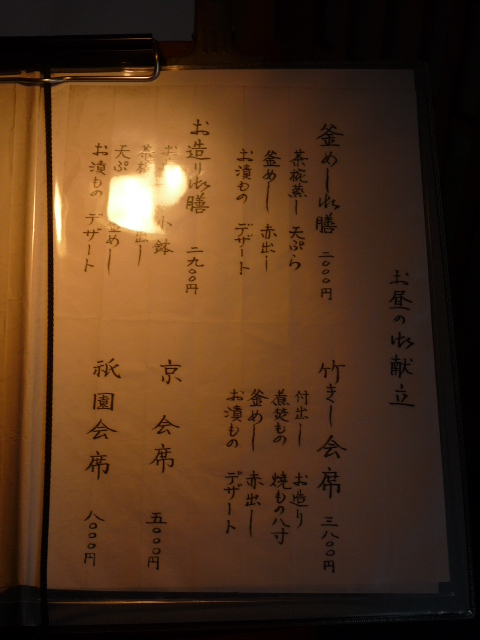 お昼の御献立
釜めし御膳 二〇〇〇円
茶椀蒸し 天ぷら
釜めし 赤出し
お漬もの デザート
お造り御膳 二九〇〇円
お 小鉢
茶椀 出し
天ぷ 釜めし
お漬もの デザート
竹きし会席 三八〇〇円
付出し お造り
煮焚もの 焼もの八寸
釜めし 赤出し
お漬もの デザート
京会席 五〇〇〇円
祇園会席 八〇〇〇円